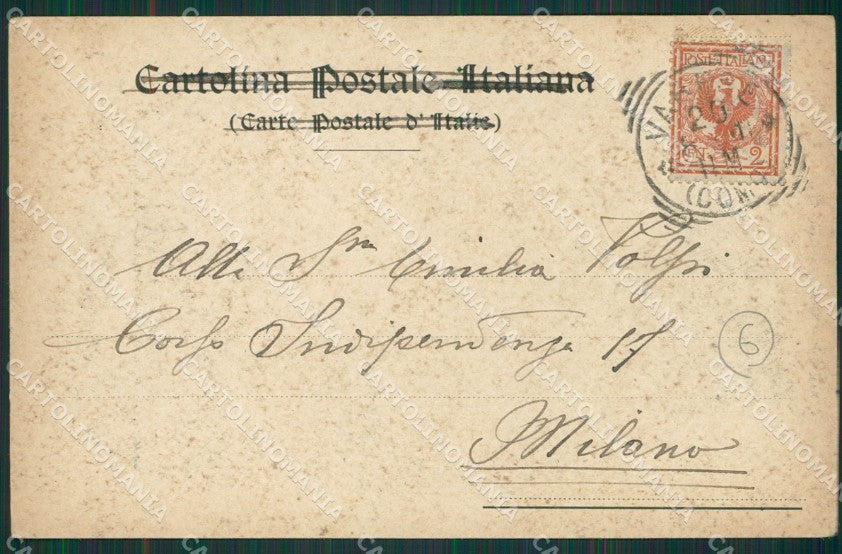 Cartolina Postale Italiana
(Carte Postale d'Italie)
POSTE ITALIANE
CENT. 2
VARESE
(COMO)
Alla Sra Emilia Volpi
Corso Indipendenza 17
Milano
6
CARTOLINOMANIA